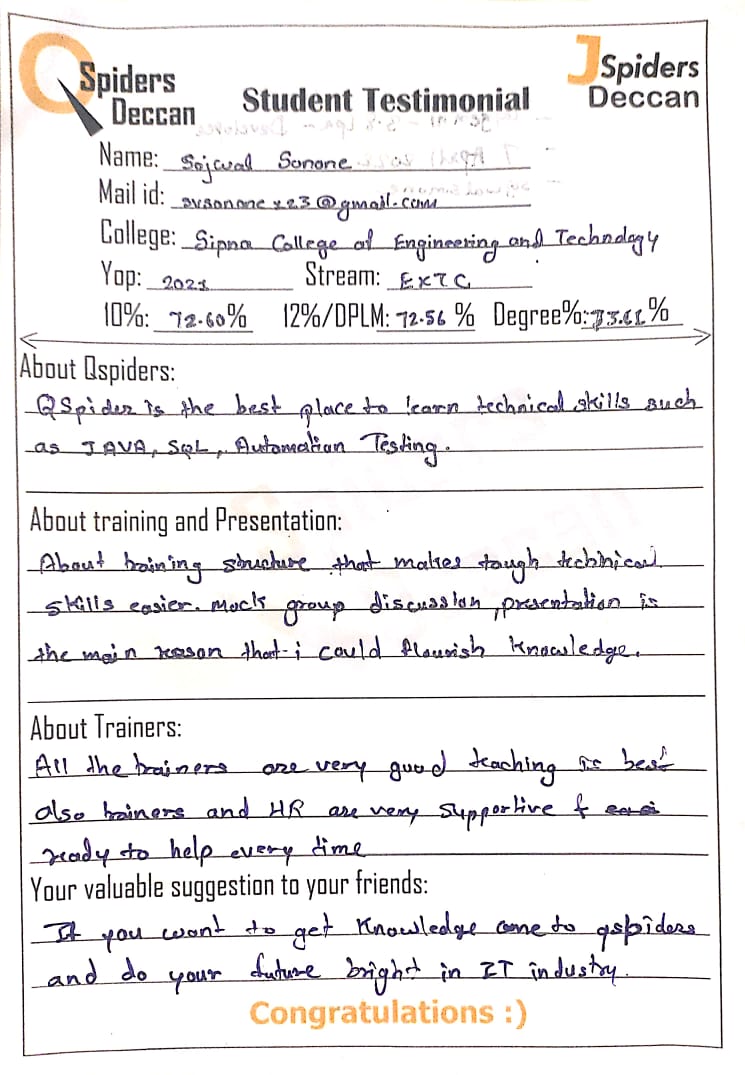 QSpiders
Deccan
Student Testimonial
JSpiders
Deccan
Name: Sojwal Sonone
Mail id: svsonone123@gmail.com
College: Sipna College of Engineering and Technology
Yop: 2021 Stream: EXTC
10%: 72.60% 12%/DPLM: 72.56 % Degree%: 73.61%
About Qspiders:
QSpider is the best place to learn technical skills such
as JAVA, SQL, Automation Testing.
About training and Presentation:
About training structure that makes tough technical
skills easier. Mock group discussion, presentation is
the main reason that i could flourish knowledge.
About Trainers:
All the trainers are very good teaching is best
also trainers and HR are very supportive &
ready to help every time
Your valuable suggestion to your friends:
If you want to get knowledge come to qspiders
and do your future bright in IT industry.
Congratulations :)